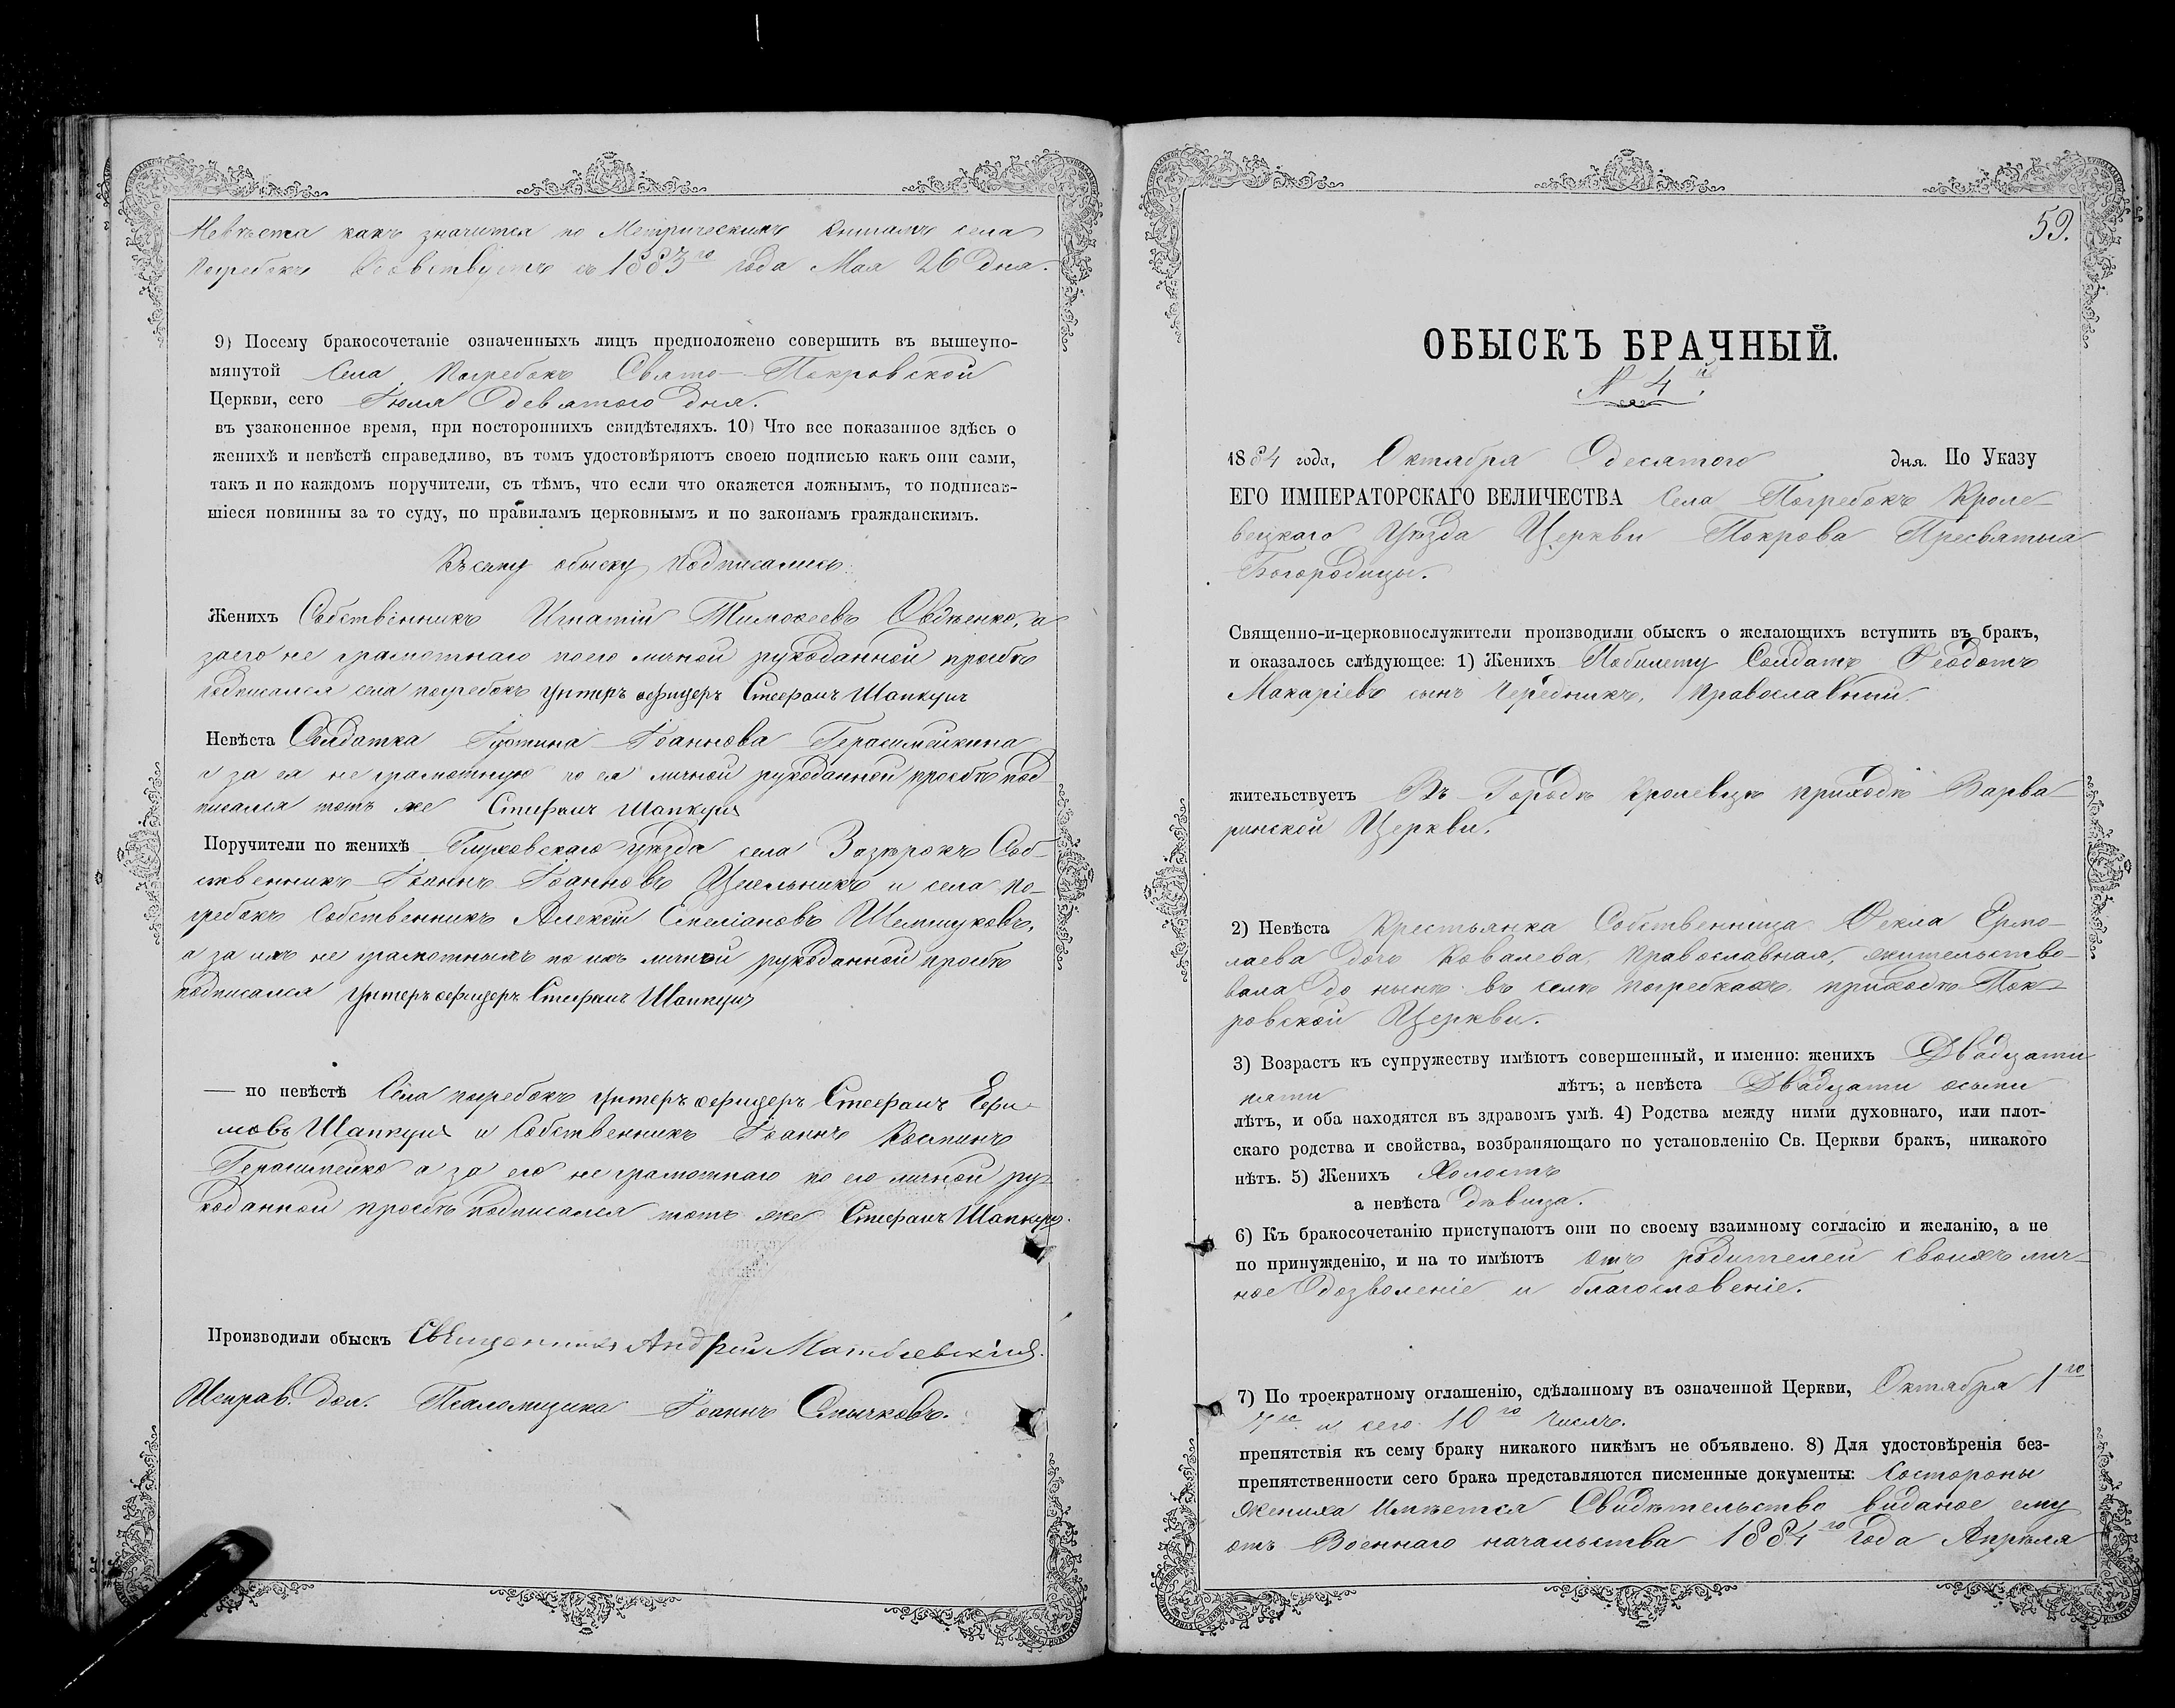 Невѣста какъ значится по Метрическимъ книгамъ села
Погребокъ вдовствуетъ съ 1883го года Мая 26 дня.
9) Посему бракосочетаніе означенныхъ лицъ предположено совершить въ вышеупо-
мянутой Села Погребокъ Свято-Покровской
Церкви, сего Іюля девятого дня.
въ узаконенное время, при постороннихъ свидѣтеляхъ. 10) Что все показанное здѣсь о
женихѣ и невѣстѣ справедливо, въ томъ удостовѣряютъ своею подписью какъ они сами,
такъ и по каждомъ поручители, съ тѣмъ, что если что окажется ложнымъ, то подписав-
шіеся повинны за то суду, по правиламъ церковнымъ и по законамъ гражданскимъ.
Къ сему обыску подписались:
Женихъ Собственникъ Игнатій Тимофеевъ Овдѣенко, а
за его не грамотнаго по его личной рукоданной прозбѣ
подписался села погребокъ унтеръ офицеръ Стефанъ Шапкунъ
Невѣста Солдатка Іустина Іоаннова Герасимейкина
а за ея не грамотную по ея личной рукоданной прозбѣ под
писался тотъ же Стефанъ Шапкунъ
Поручители по женихѣ Глуховскаго уѣзда села Зазѣрокъ Соб-
ственникъ Іоаннъ Іоанновъ и села По-
гребокъ Собственникъ Алексѣй
а за ихъ не грамотныхъ по ихъ личной рукоданной прозбѣ
подписался унтеръ офицеръ Стефанъ Шапкунъ
— по невѣстѣ Села погребокъ унтеръ офицеръ Стефанъ Ефи-
мовъ Шапкунъ и Собственникъ Іоаннъ
Герасимейко а за его не грамотнаго по его личной ру-
коданной прозбѣ подписался тотъ же Стефанъ Шапкунъ.
Производили обыскъ Священникъ Андрей Матвіевскій.
Исправ. дол. Псаломщика Іоаннъ Смычковъ.
59.
ОБЫСКЪ БРАЧНЫЙ.
N 4й.
1884 года, Октября десятого дня. По Указу
ЕГО ИМПЕРАТОРСКАГО ВЕЛИЧЕСТВА Села Погребокъ Кроле-
вецкаго Уѣзда Церкви Покрова Пресвятыя
Богородицы.
Священно-и-церковнослужители производили обыскъ о желающихъ вступить въ бракъ,
и оказалось слѣдующее: 1) Женихъ Побилету Солдатъ Феодотъ
Макаріевъ сынъ Чередникъ, Православный.
жительствуетъ Въ Городѣ Кролевцѣ приходѣ Варва
ринской Церкви.
2) Невѣста Крестьянка Собственница Фекла Ермо-
лаева дочь Ковалева, православная, жительство-
вала до нынѣ въ селѣ Погребкахъ приходѣ Пок-
ровской Церкви.
3) Возрастъ къ супружеству имѣютъ совершенный, и именно: женихъ Двадцати
пяти лѣтъ; а невѣста Двадцати осьми
лѣтъ, и оба находятся въ здравомъ умѣ. 4) Родства между ними духовнаго, или плот-
скаго родства и свойства, возбраняющаго по установленію Св. Церкви бракъ, никакого
нѣтъ. 5) Женихъ Холостъ
а невѣста дѣвица.
6) Къ бракосочетанію приступаютъ они по своему взаимному согласію и желанію, а не
по принужденію, и на то имѣютъ отъ родителей своихъ лич-
ное дозволеніе и благословеніе.
7) По троекратному оглашенію, сдѣланному въ означенной Церкви, Октября 1го
7го и сего 10го числъ.
препятствія къ сему браку никакого никѣмъ не объявлено. 8) Для удостовѣренія без-
препятственности сего брака представляются писменные документы: Состороны
жениха имѣется Свидѣтельство виданое ему
отъ Военнаго начальства 1884го года Апрѣля